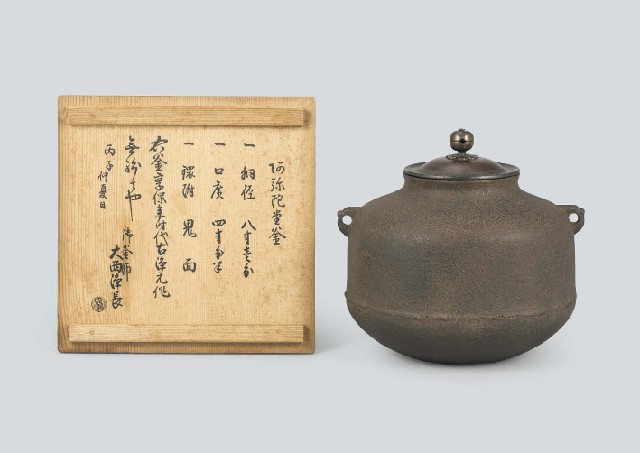 阿弥陀堂釜
一 胴径 八寸壱分
一 口広 四寸分半
一 鐶附 鬼面
右釜享保年時代古浄元作
無紛者也
丙子仲夏日
御釜師
大西浄長